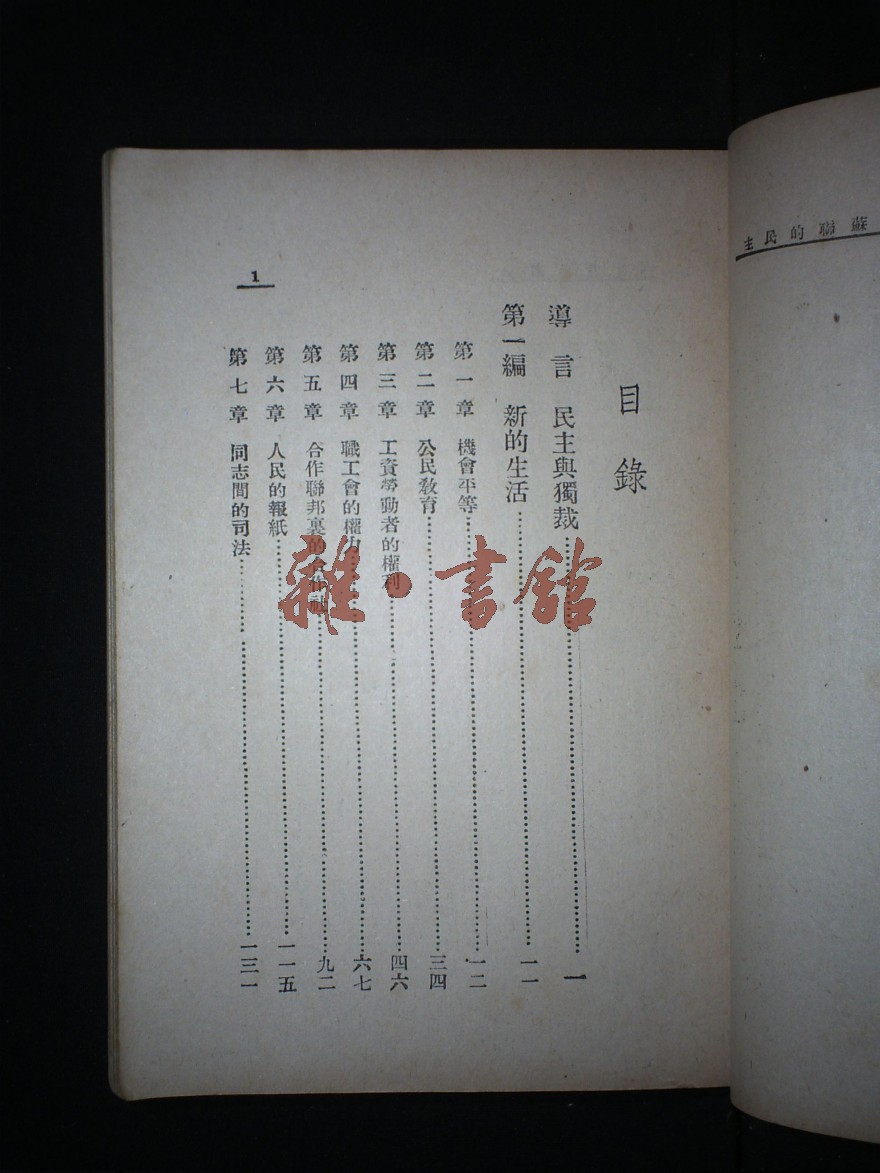 蘇聯的民主
目錄
導言 民主與獨裁……一
第一編 新的生活……一一
第一章 機會平等……一二
第二章 公民教育……三四
第三章 工資勞動者的權利……四六
第四章 職工會的權力……六七
第五章 合作聯邦裏的合作社……九二
第六章 人民的報紙……一一五
第七章 同志間的司法……一三一
1
雜·書館